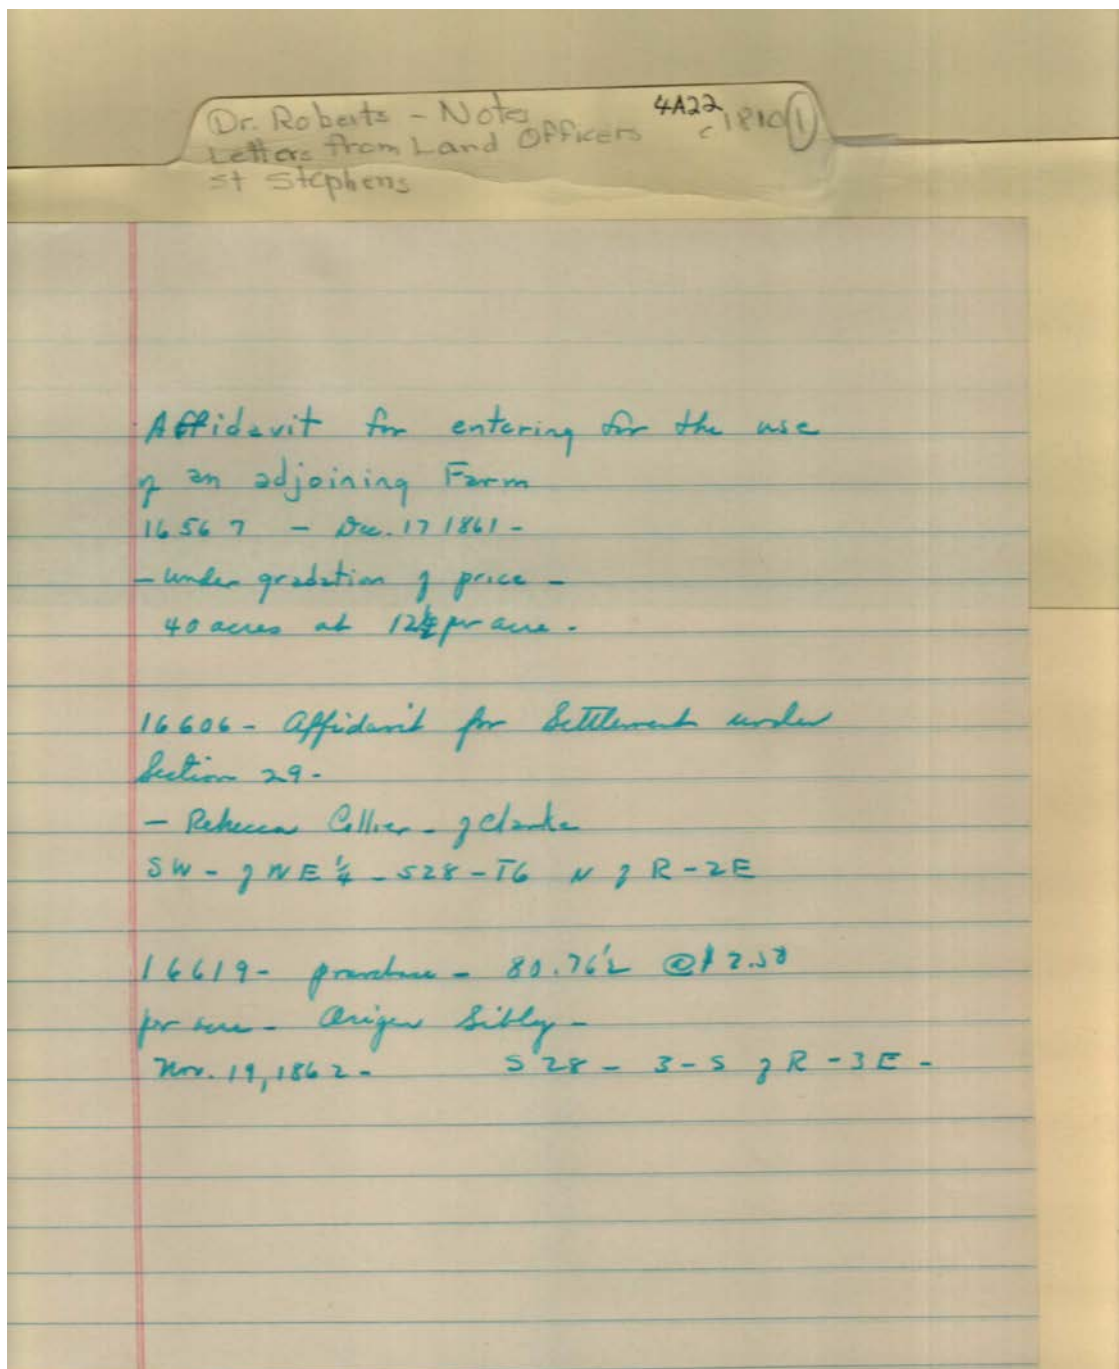 Dr. Roberts - Notes 4A22
Letters from Land Officers c 1810 (1)
St Stephens
Affidavit for entering for the use
of an adjoining Farm
16567 - Dec. 17 1861 -
- under gradation of price -
40 acres at 12½ per acre.
16606 - Affidavit for Settlement under
Section 29 -
- Rebecca Collier - of Clarke
SW - of NE ¼ - S28 - T6 N of R - 2E
16619 - - 80.76 @ $2.50
per acre - Origen Sibley -
Nov. 19, 1862 - S 28 - 3 - S of R - 3E -